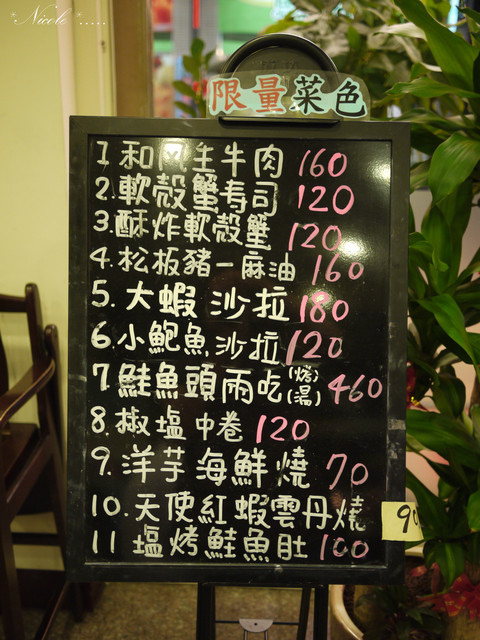 *Nicole*.....
限量菜色
1 和風生牛肉 160
2. 軟殼蟹寿司 120
3. 酥炸軟殼蟹 120
4. 松板豬一麻油 160
5. 大蝦沙拉 180
6. 小鮑魚沙拉 120
7. 鮭魚頭兩吃(烤)(湯) 460
8. 椒塩中卷 120
9. 洋芋海鮮燒 70
10. 天使紅蝦雲丹燒
11 塩烤鮭魚肚 100